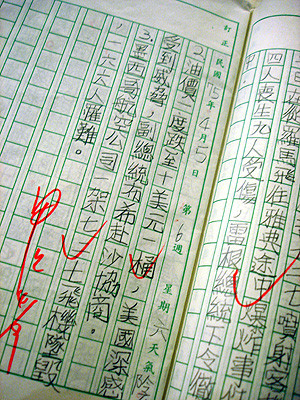 羅馬飛往雅典途中爆炸事件
四人喪生九人受傷,雷根總統下令徹
訂正 民國75年4月5日 第6週 星期六 天氣陰
2.油價一度跌至十美元一桶,美國深感
受到威脅,副總統布希赴沙協商。
3.墨西哥航空公司一架七二七飛機墜毀
一六六人罹難。
甲上